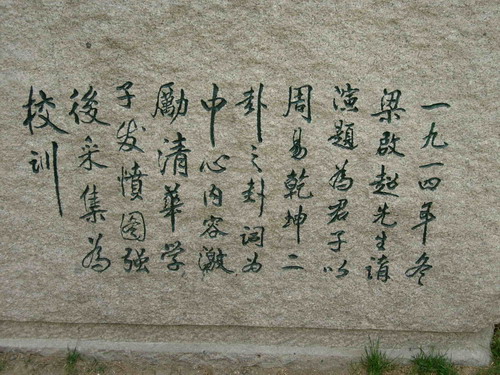 一九一四年冬
梁啟超先生清
演題為君子以
周易乾坤二
卦之卦词为
中心内容激
勵清華学
子发憤图强
後采集為
校训